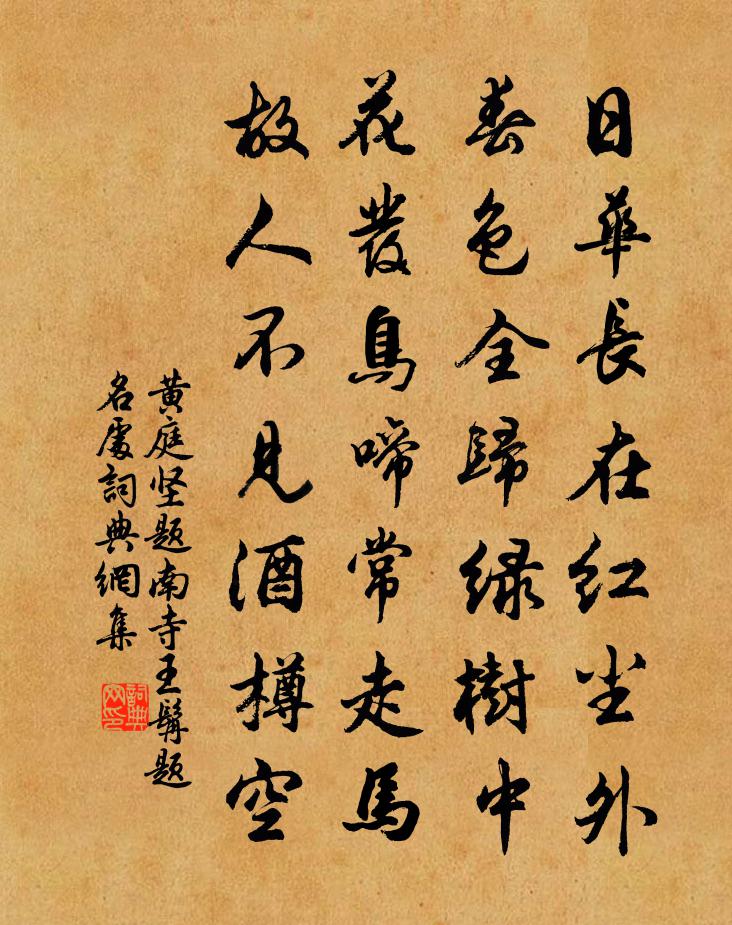 日華長在紅尘外
春色全歸緑樹中
花發鳥啼常走馬
故人不見酒樽空
黄庭坚题南寺王髯题
名處詞典網集
詞典
网印